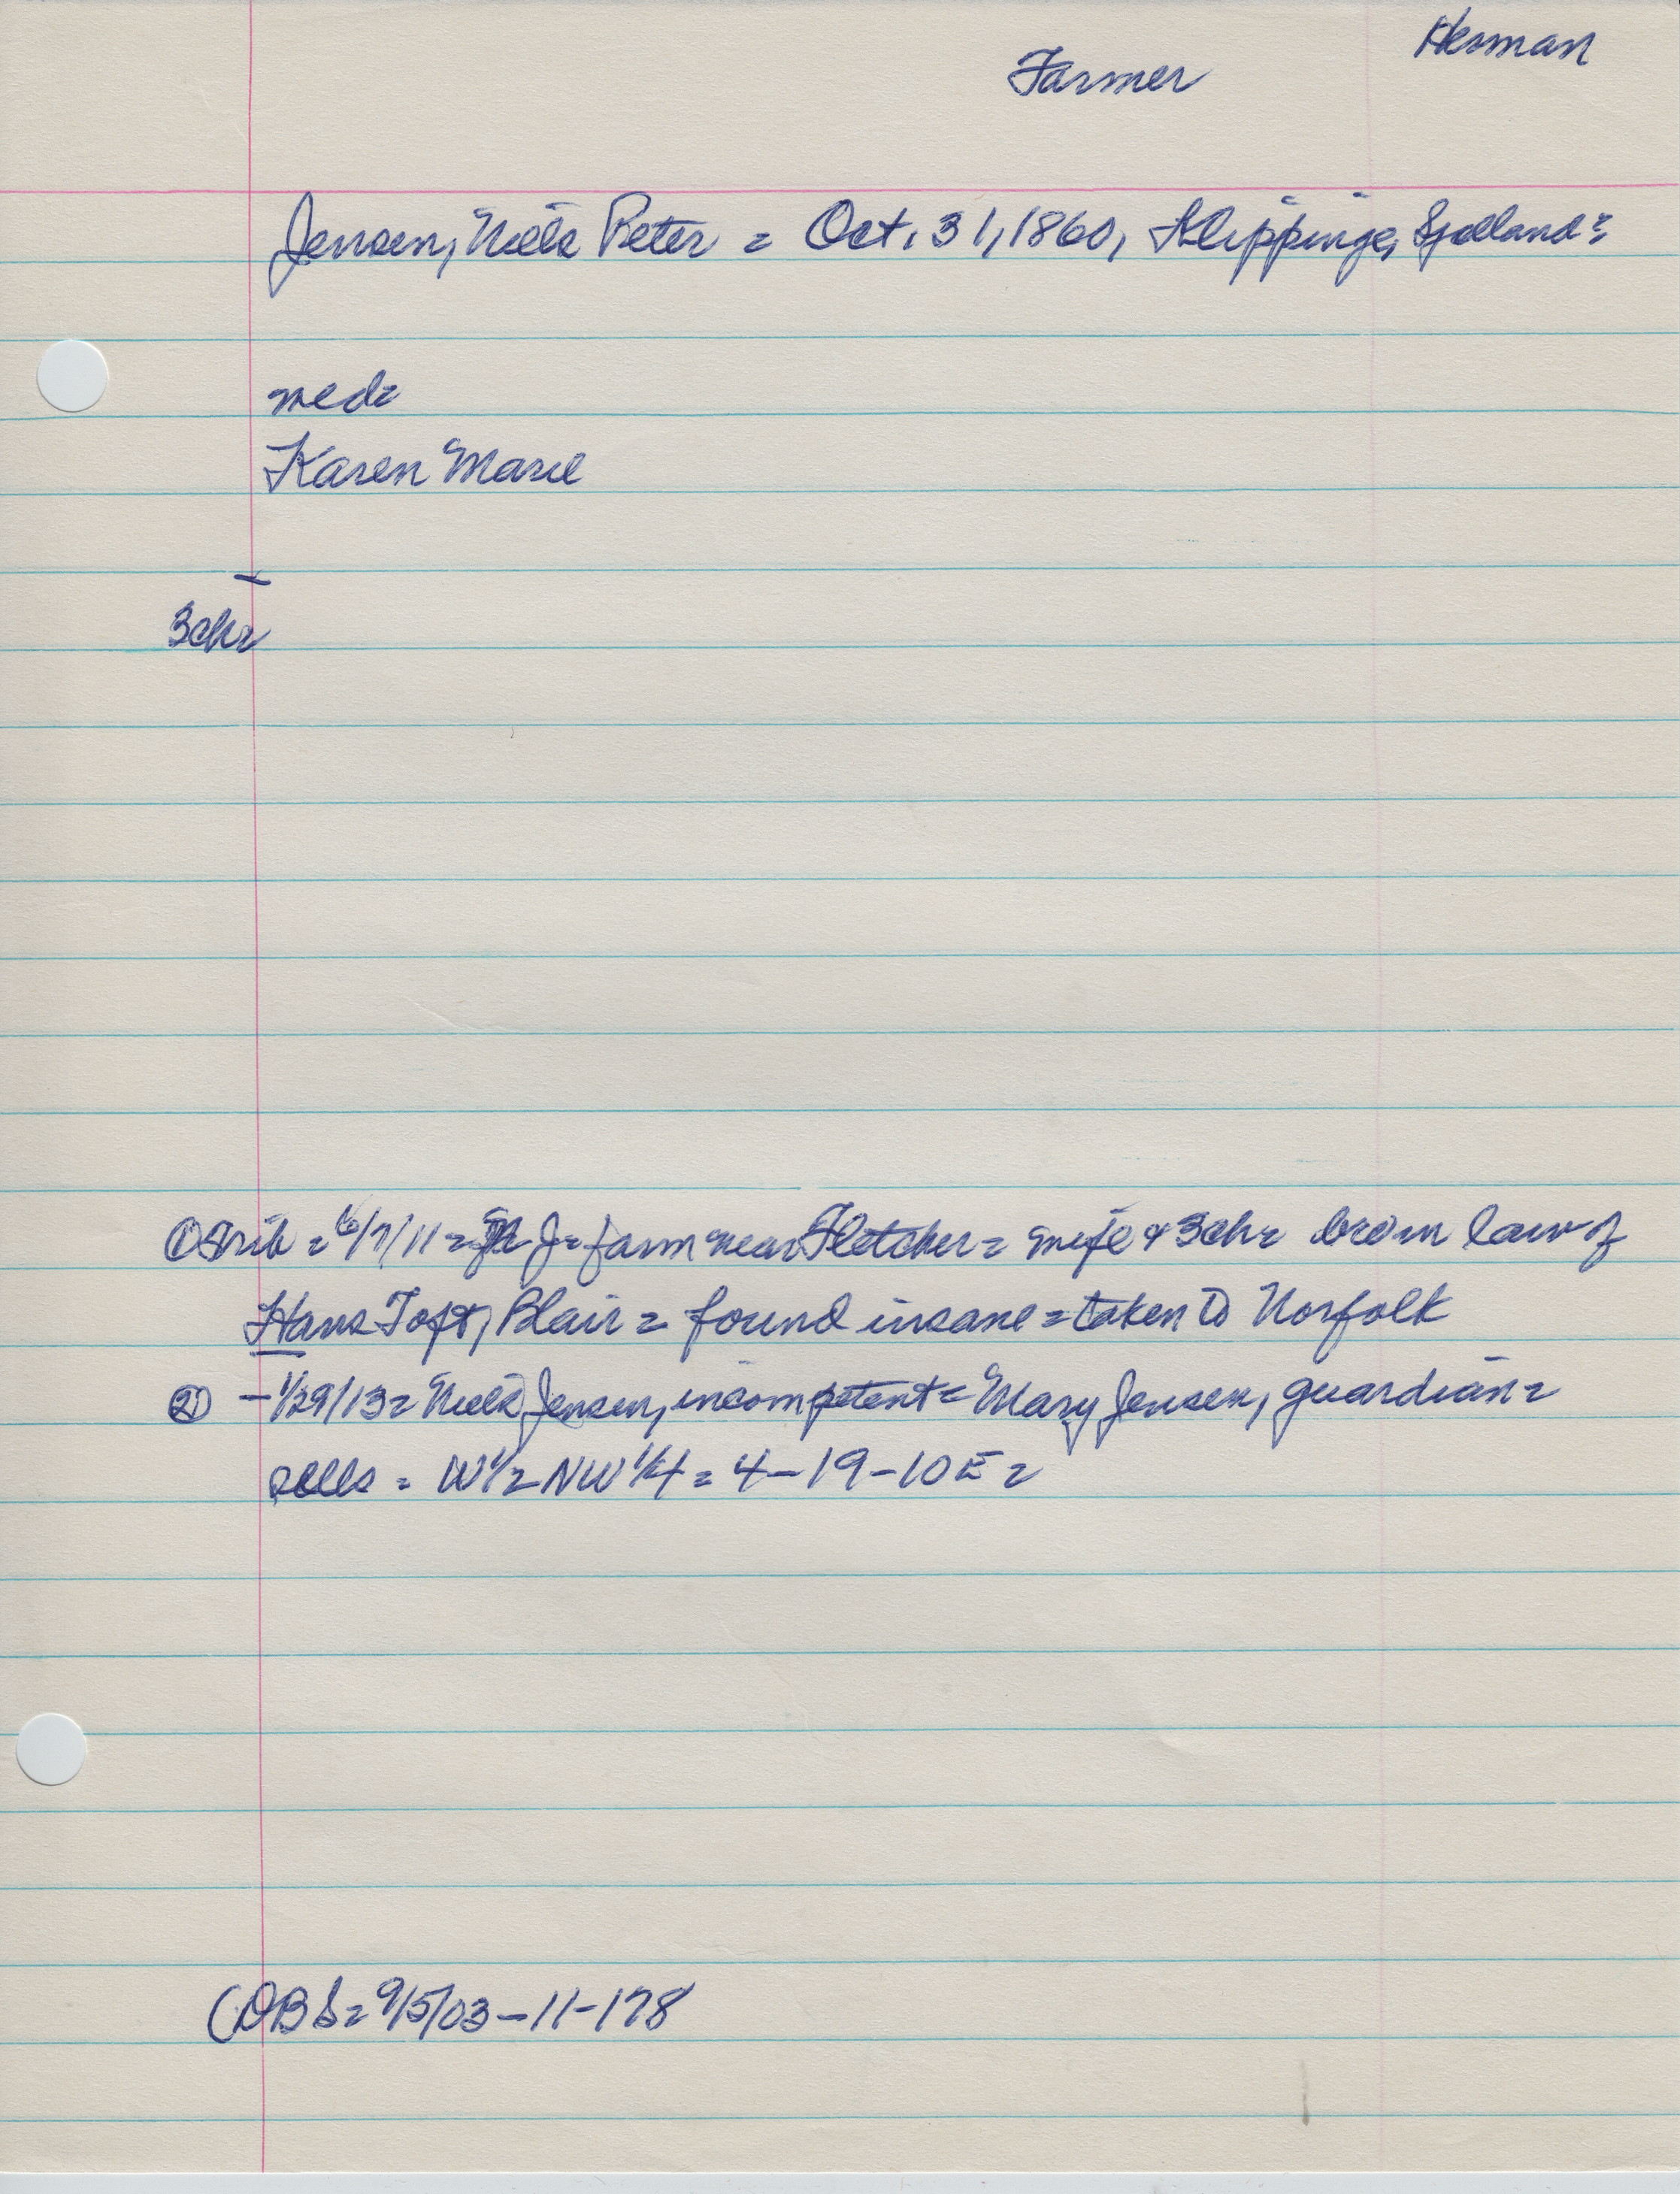 Herman
Farmer
Jensen, Niels Peter = Oct. 31, 1860, Klippinge, Sjelland =
med =
Karen Marie
3 chr
① Trib = 6/7/11 = J = farm near Fletcher = wife & 3 chr = bro in law of
Hans Toft, Blair = found insane = taken to Norfolk
② - 1/29/13 = Niels Jensen, incompetent = Mary Jensen, guardian =
sells = W 1/2 NW 1/4 = 4-19-10 E =
9/5/03-11-178